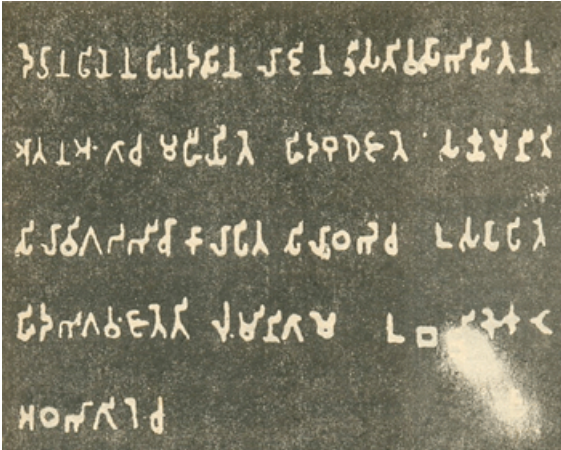 𑀤𑁂𑀯𑀸𑀦𑀧𑀺𑀬𑁂𑀦 𑀧𑀺𑀬𑀤𑀲𑀺𑀦 𑀮𑀸𑀚𑀺𑀦 𑀯𑀻𑀲𑀢𑀺𑀯𑀲𑀸𑀪𑀺𑀲𑀺𑀢𑁂𑀦
𑀅𑀢𑀦𑀆𑀕𑀸𑀘 𑀫𑀳𑀻𑀬𑀺𑀢𑁂 𑀳𑀺𑀤𑀩𑀼𑀥𑁂𑀚𑀸𑀢𑁂 𑀲𑀓𑁆𑀬𑀫𑀼𑀦𑀻𑀢𑀺
𑀲𑀺𑀮𑀸𑀯𑀺𑀕𑀥𑀪𑀻𑀘𑀸𑀓𑀸𑀧𑀸𑀧𑀺𑀢 𑀲𑀺𑀮𑀸𑀣𑀪𑁂𑀘 𑀉𑀲𑀧𑀸𑀧𑀺𑀢𑁂
𑀳𑀺𑀤𑀪𑀕𑀯𑀁𑀚𑀸𑀢𑁂𑀢𑀺 𑀮𑀼𑀁𑀫𑀺𑀦𑀺𑀕𑀸𑀫𑁂 𑀉𑀩𑀮𑀺𑀓𑁂𑀓𑀝𑁂
𑀅𑀞𑀪𑀸𑀕𑀺𑀬𑁂𑀘